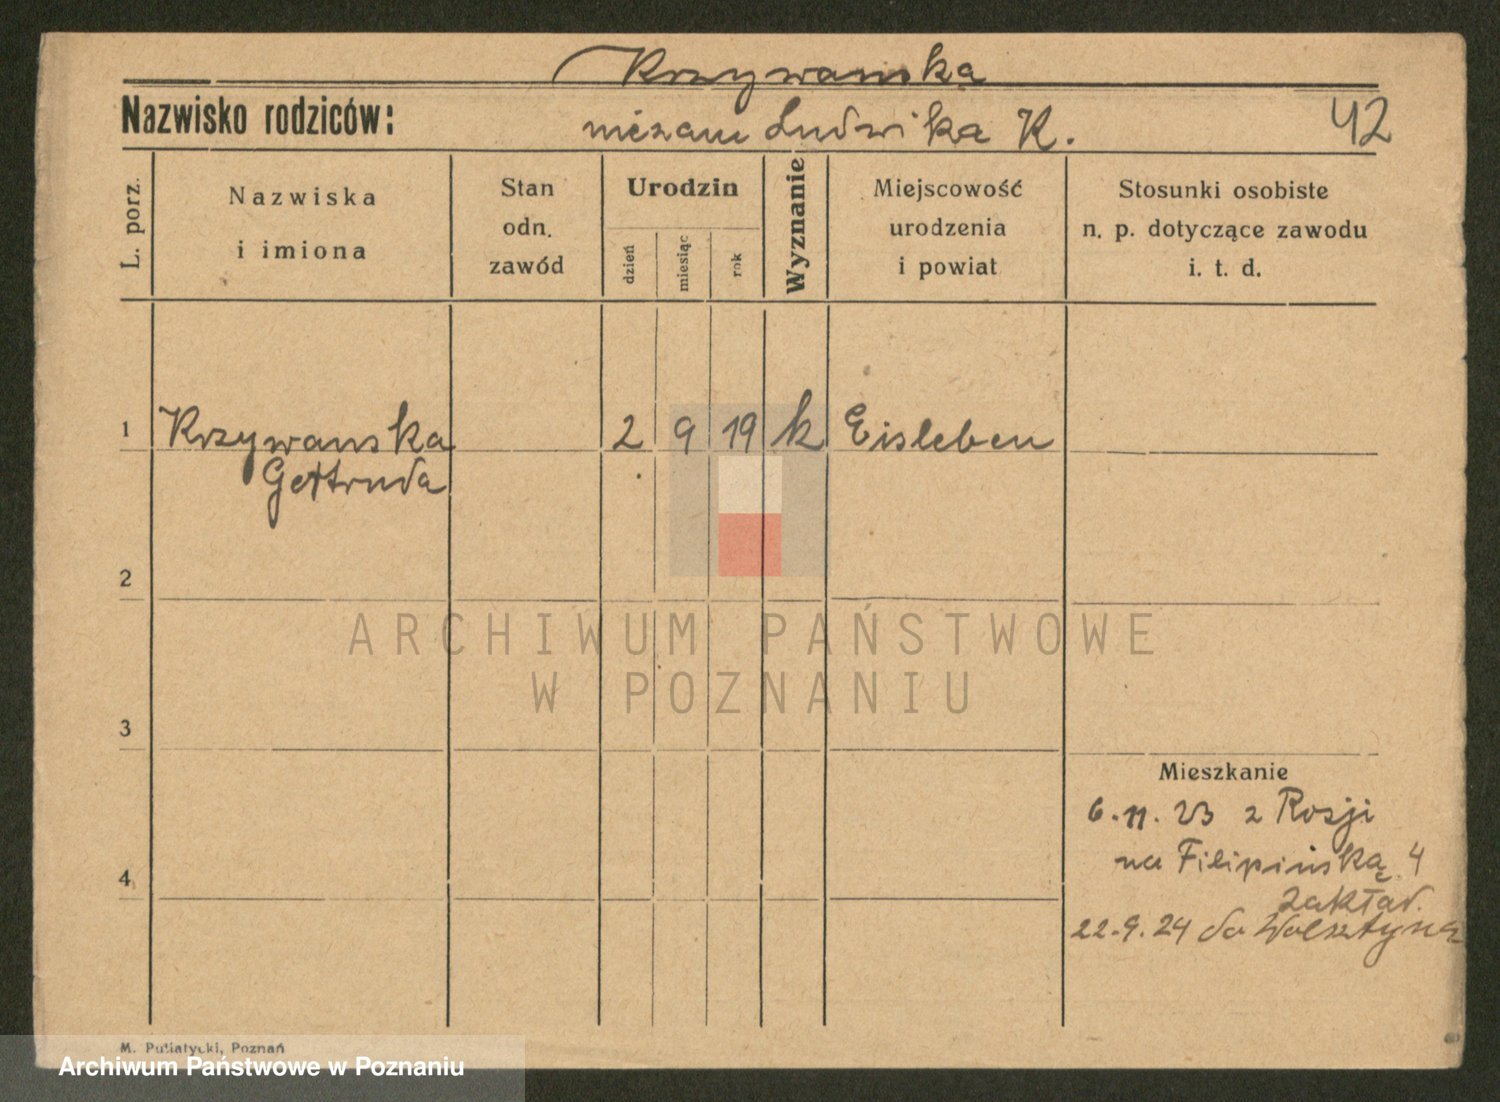 Krzywanska
Nazwisko rodziców:
niezam Ludwika K.
42
L. porz.
Nazwiska
i imiona
Stan
odn.
zawód
Urodzin
dzień
miesiąc
rok
Wyznanie
Miejscowość
urodzenia
i powiat
Stosunki osobiste
n. p. dotyczące zawodu
i. t. d.
1 Krzywanska 2 9 19 k Eisleben
Gertruda
2
ARCHIWUM PAŃSTWOWE
W POZNANIU
3
Mieszkanie
6.11.23 z Rosji
na Filipińską 4
zakład.
4
22.9.24 do Wolsztyna
M. Putiatycki, Poznań
Archiwum Państwowe w Poznaniu